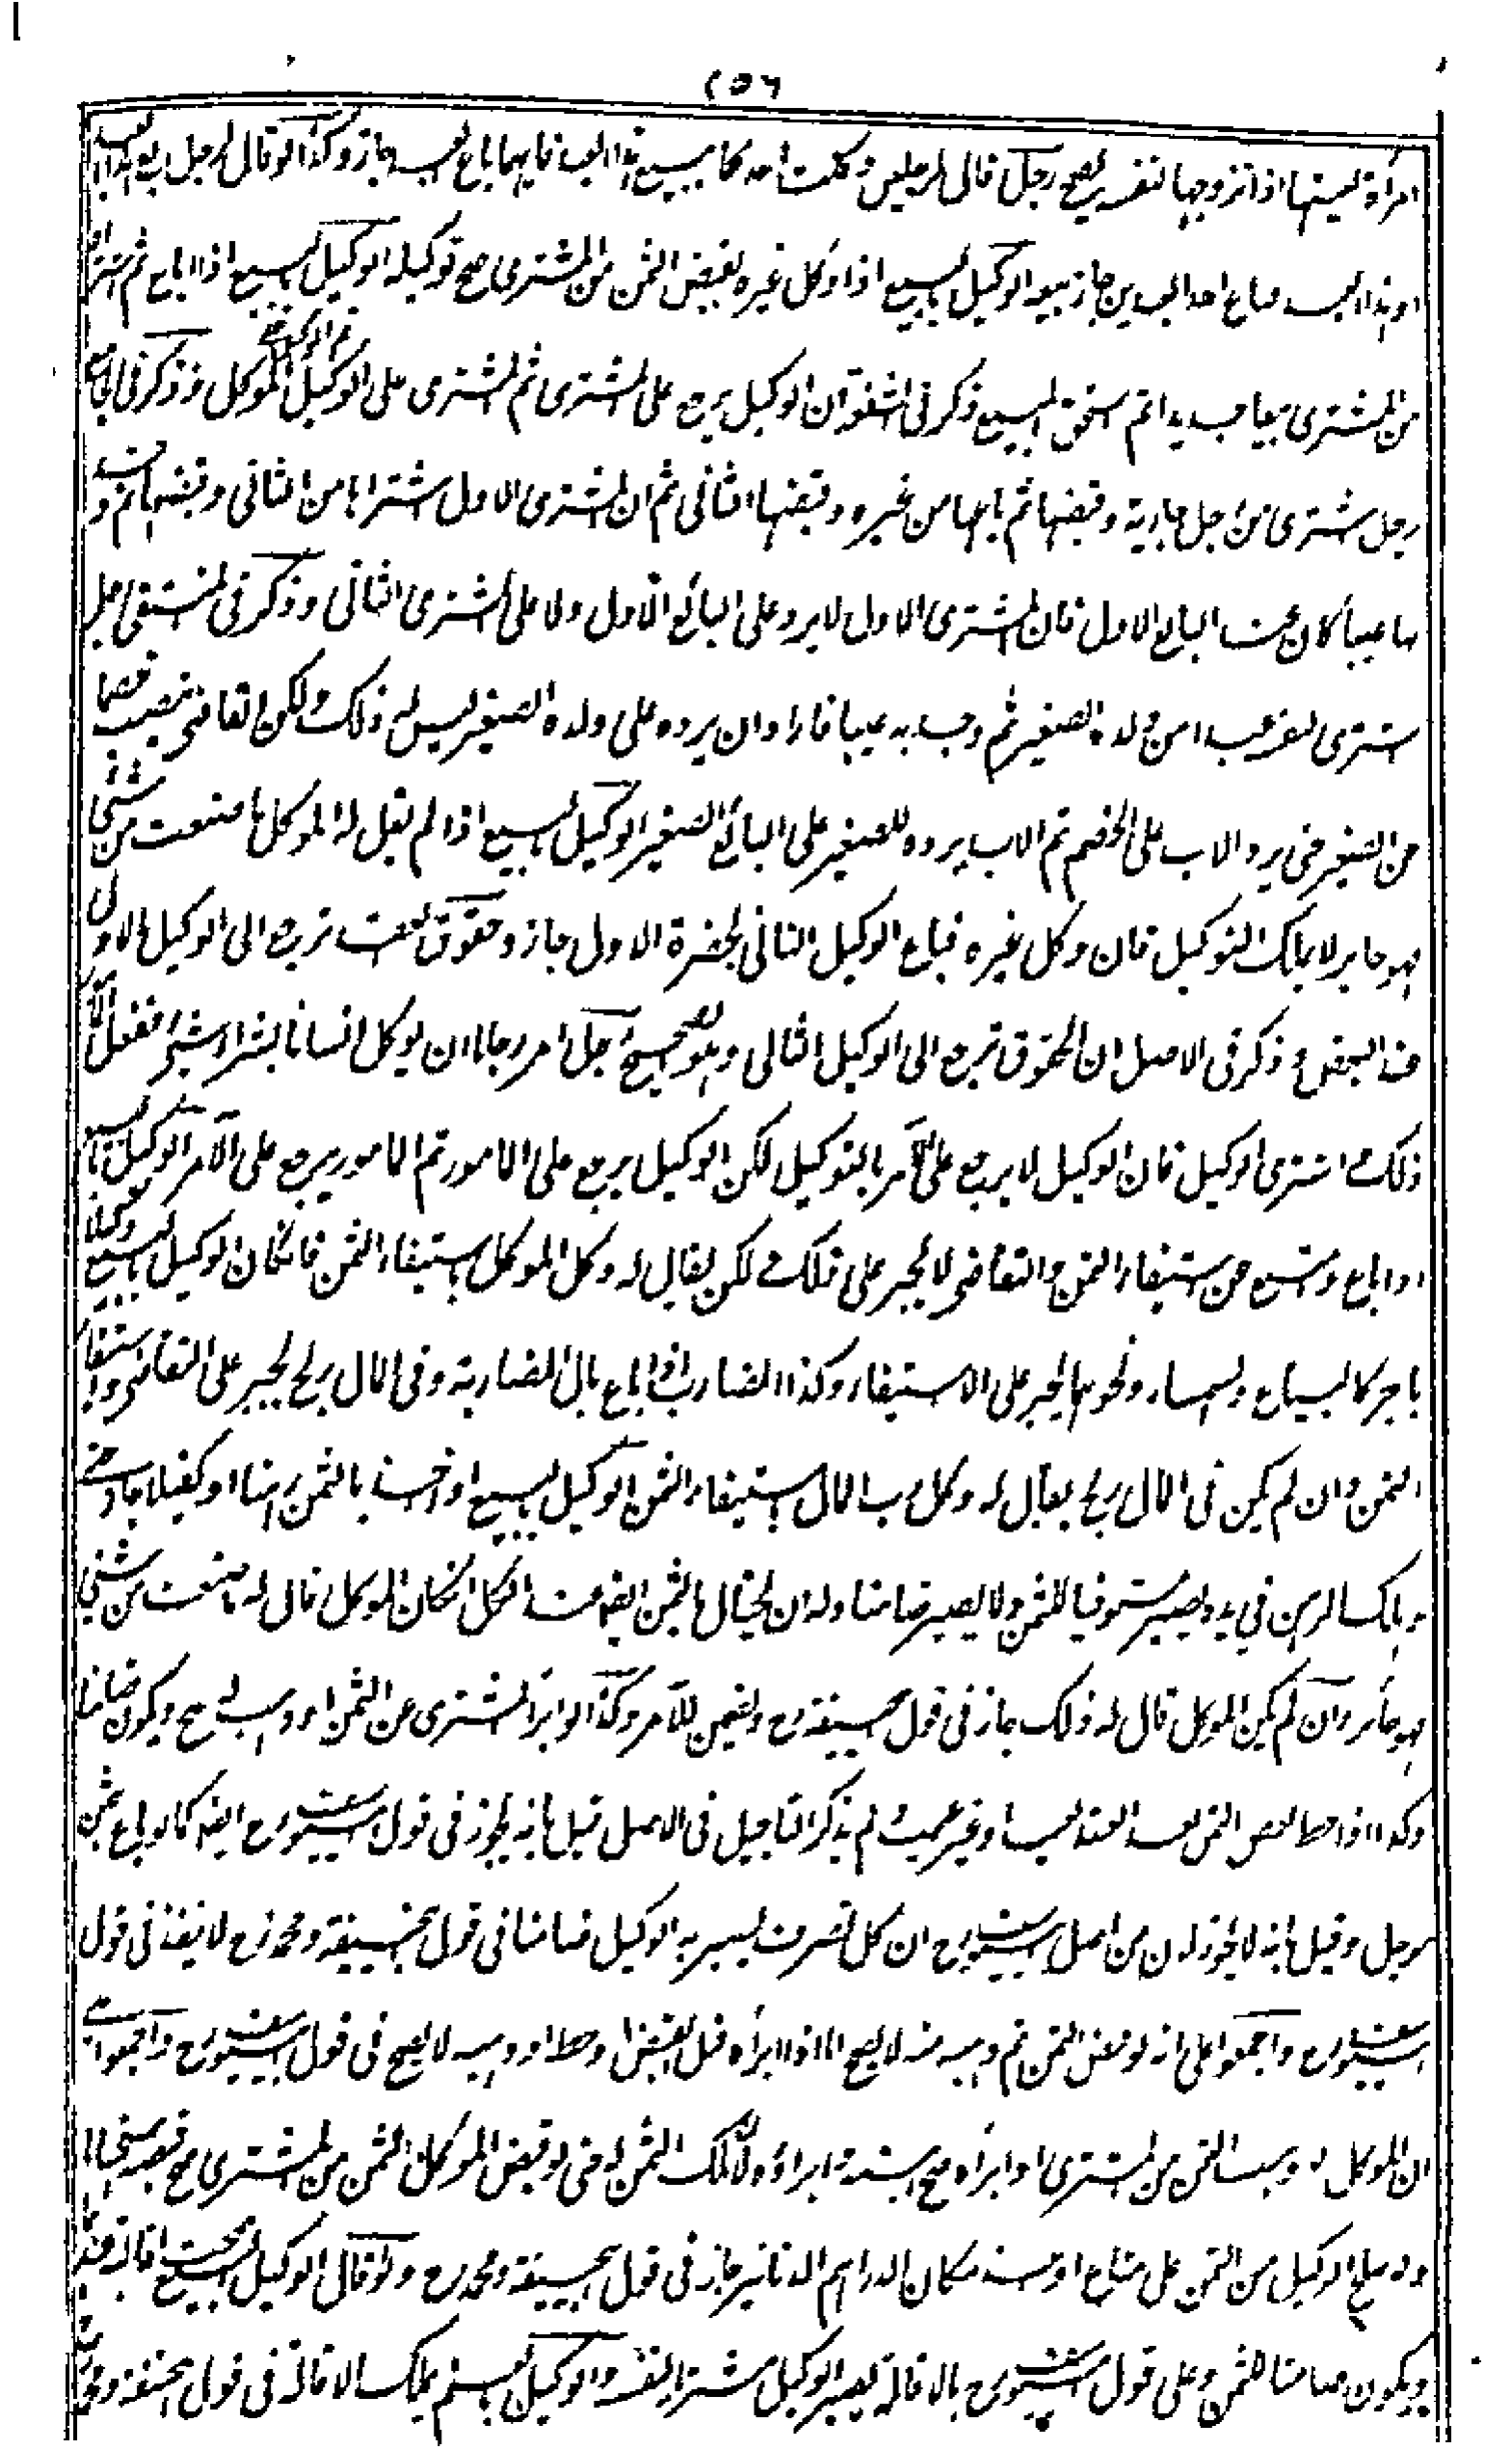 ٢٥٦
امرأة بعينها اذا تزوجها لنفسه يصح رجل قال لرجلين وكلت احدكما ببيع هذا العبد فايهما باع العبد جاز وكذا لو قال لرجل بع هذا العبد
او هذا العبد فباع احد العبدين جاز بيعه الوكيل بالبيع اذا وكل غيره بقبض الثمن من المشترى صح توكيله الوكيل بالبيع اذا باع ثم اشتراه
من المشترى بيعا جديدا ثم استحق المبيع ذكر فى ان الوكيل يرجع على المشترى ثم المشترى على الوكيل ثم الوكيل على الموكل وذكر فى
رجل اشترى من رجل جارية وقبضها ثم باعها من غيره وقبضها الثانى ثم ان المشترى الاول اشتراها من الثانى وقبضها ثم وجد
بها عيبا كان عند البائع الاول فان المشترى الاول لا يرد على البائع الاول ولا على المشترى الثانى وذكر فى المنتقى رجل
اشترى لنفسه عبدا من ولده الصغير ثم وجد به عيبا فاراد ان يرده على ولده الصغير ليس له ذلك ولكن القاضى ينصب خصما
عن الصغير حتى يرد الاب على الخصم ثم الاب يرده للصغير على البائع الصغير الوكيل بالبيع اذا لم يقل له الموكل ما صنعت من شئ
فهو جايز لا يملك التوكيل فان وكل غيره فباع الوكيل الثانى بحضرة الاول جاز وحقوق العقد ترجع الى الوكيل الاول
عند البعض وذكر فى الاصل ان الحقوق ترجع الى الوكيل الثانى وهو الصحيح رجل امر رجلا ان يوكل انسانا بشراء شئ ففعل
ذلك واشترى الوكيل فان الوكيل لا يرجع على الآمر بالتوكيل لكن الوكيل يرجع على المامور ثم المامور يرجع على الآمر الوكيل بالبيع
اذا باع وامتنع عن استيفاء الثمن والتقاضى لا يجبر على ذلك ولكن يقال له وكل الموكل باستيفاء الثمن فان كان الوكيل بالبيع وكيلا
باجر كالبياع والسمسار ونحوهما يجبر على الاستيفاء وكذا المضارب اذا باع مال المضاربة وفى المال ربح يجبر على التقاضى واستيفاء
الثمن وان لم يكن فى المال ربح يقال له وكل رب المال باستيفاء الثمن الوكيل بالبيع اذا اخذ بالثمن رهنا او كفيلا جاز حتى
لو هلك الرهن فى يده يصير مستوفيا للثمن ولا يصير ضامنا وله ان يحتال بالثمن ايضا عند الكل ان كان الموكل قال له ما صنعت من شئ
فهو جائز وان لم يكن الموكل قال له ذلك جاز فى قول ابيحنيفة رح ويضمن للآمر وكذا لو ابرأ المشترى عن الثمن او وهب له صح ويكون ضامنا
وكذا اذا حط بعض الثمن بعد العقد لعيب او غير عيب ولم يذكر التاجيل فى الاصل قيل بانه يجوز فى قول ابيحنيفة رح ايضا كما لو باع بثمن
مؤجل وقيل بانه لا يجوز لان من اصل ابييوسف رح ان كل تصرف يصير به الوكيل ضامنا فى قول ابيحنيفة ومحمد رح لا ينفذ فى قول
ابييوسف رح واجمعوا على انه لو قبض الثمن ثم وهبه منه لا يصح اما اذا ابرأه قبل القبض او حط او وهبه لا يصح فى قول ابييوسف رح واجمعوا على
ان الموكل لو وهب الثمن من المشترى او ابرأه صح هبته وابراؤه لان الثمن له حتى لو قبض الموكل الثمن من المشترى صح قبضه استحسانا
ولو صالح الوكيل من الثمن على متاع او اخذ مكان الدراهم الدنانير جاز فى قول ابيحنيفة ومحمد رح ولو اقال الوكيل البيع صحت اقالته عندهما
ويكون ضامنا للثمن وعلى قول ابييوسف رح بالاقالة يصير الوكيل مشتريا لنفسه والوكيل بالسلم يملك الاقالة فى قول ابيحنيفة ومحمد